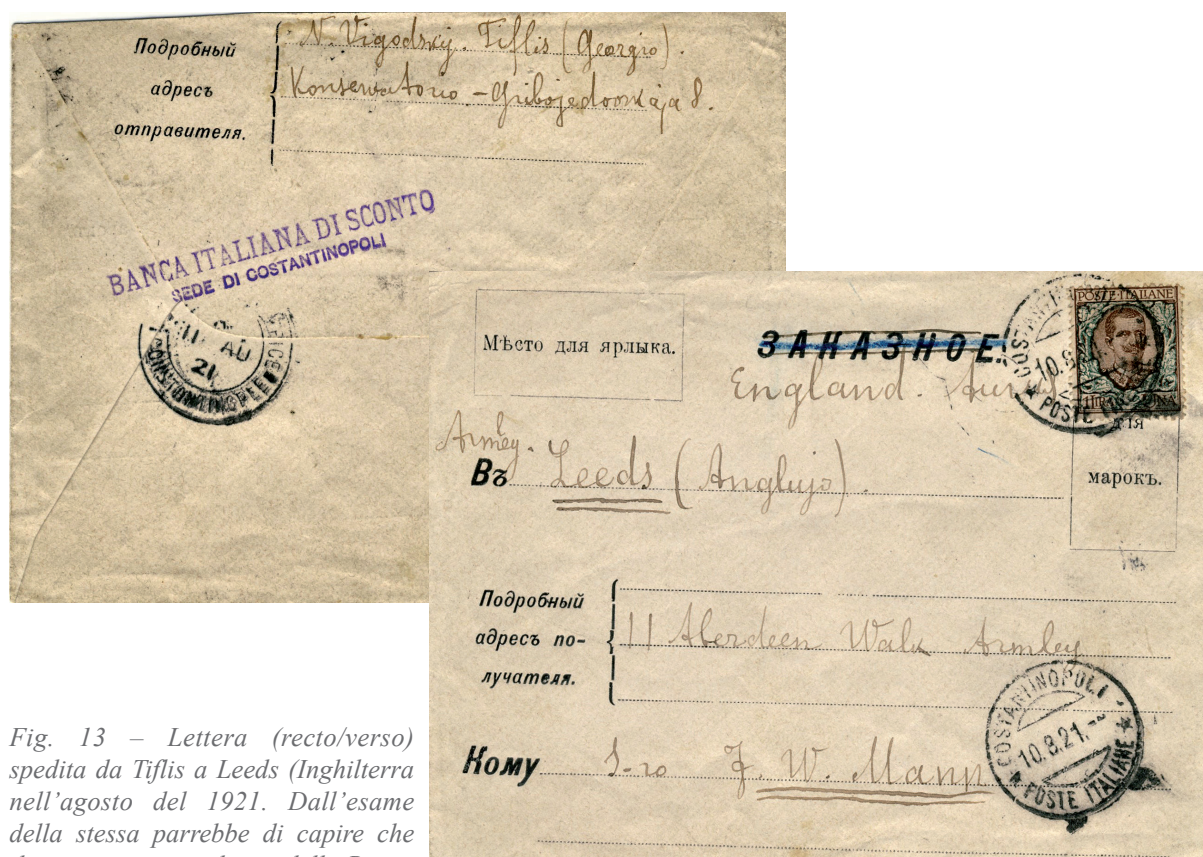 Подробный
адресъ
отправителя.
N. Vigodskij. Tiflis (Georgio).
Konservatorio - Gribojedovskaja 8.
BANCA ITALIANA DI SCONTO
SEDE DI COSTANTINOPOLI
AU
21
Мѣсто для ярлыка.
ЗАКАЗНОЕ.
POSTE ITALIANE
10.8.
POSTE
England.
для
марокъ.
Armley.
Въ Leeds (Anglujo).
Подробный
адресъ по-
лучателя.
11 Aberdeen Walk Armley
Кому S-ro J. W. Mann
COSTANTINOPOLI
10.8.21.
POSTE ITALIANE
Fig. 13 – Lettera (recto/verso)
spedita da Tiflis a Leeds (Inghilterra
nell'agosto del 1921. Dall'esame
della stessa parrebbe di capire che